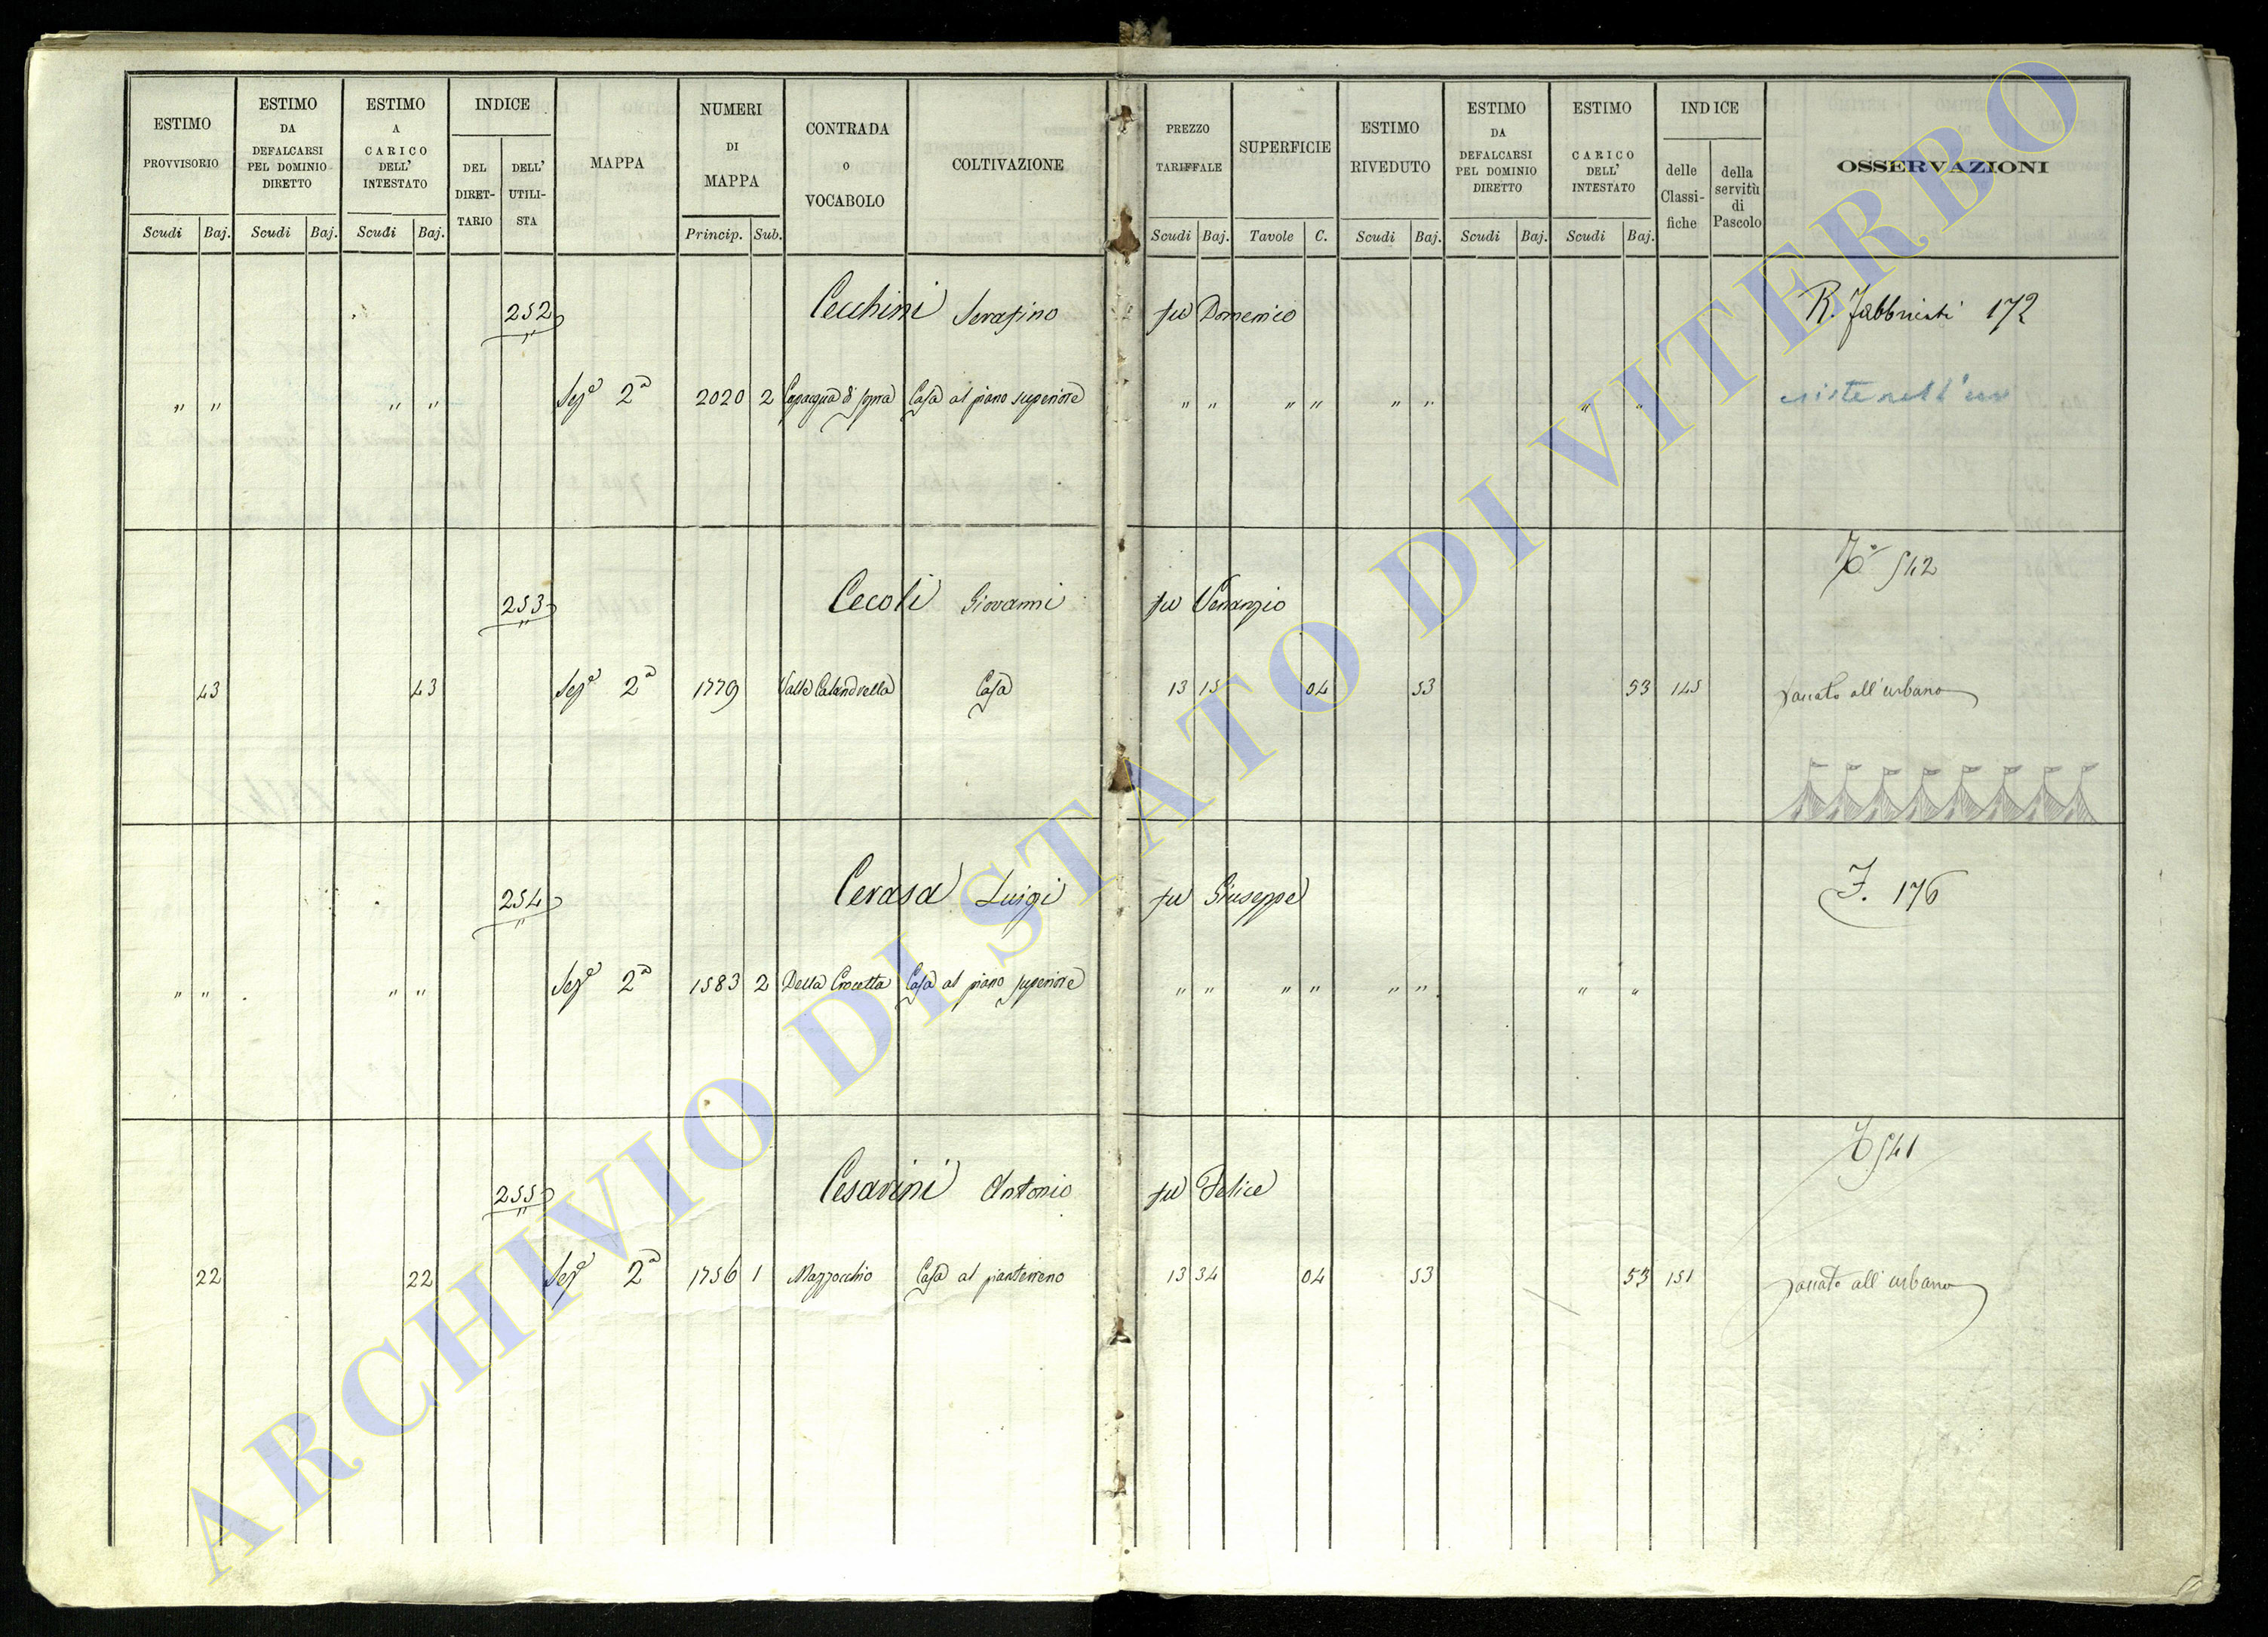 ESTIMO PROVVISORIO
ESTIMO DA DEFALCARSI PEL DOMINIO DIRETTO
ESTIMO A CARICO DELL' INTESTATO
INDICE
DEL DIRET-TARIO
DELL' UTILI-STA
MAPPA
NUMERI DI MAPPA
CONTRADA o VOCABOLO
COLTIVAZIONE
PREZZO TARIFFALE
SUPERFICIE
ESTIMO RIVEDUTO
ESTIMO DA DEFALCARSI PEL DOMINIO DIRETTO
ESTIMO CARICO DELL' INTESTATO
INDICE
delle Classi-fiche
della servitù di Pascolo
OSSERVAZIONI
Scudi Baj. Scudi Baj. Scudi Baj. Princip. Sub. Scudi Baj. Tavole C. Scudi Baj. Scudi Baj. Scudi Baj.
252 Cecchini Serafino fu Domenico R. Fabbricati 172
" " " " Sez.e 2a 2020 2 Capacqua di sopra Casa al piano superiore " " " " " " " " esiste nell'
253 Cecoli Giovanni fu Venanzio 542
43 43 Sez.e 2a 1779 Valle Calandrella Casa 13 15 04 53 53 145 passato all'urbano
254 Cerasa Luigi fu Giuseppe F. 176
" " " " Sez.e 2a 1583 2 Della Crocetta Casa al piano superiore " " " " " " " "
255 Cesarini Antonio fu Felice 541
22 22 Sez.e 2a 1756 1 Mazzocchio Casa al pianterreno 13 34 04 53 53 151 passato all'urbano
ARCHIVIO DI STATO DI VITERBO